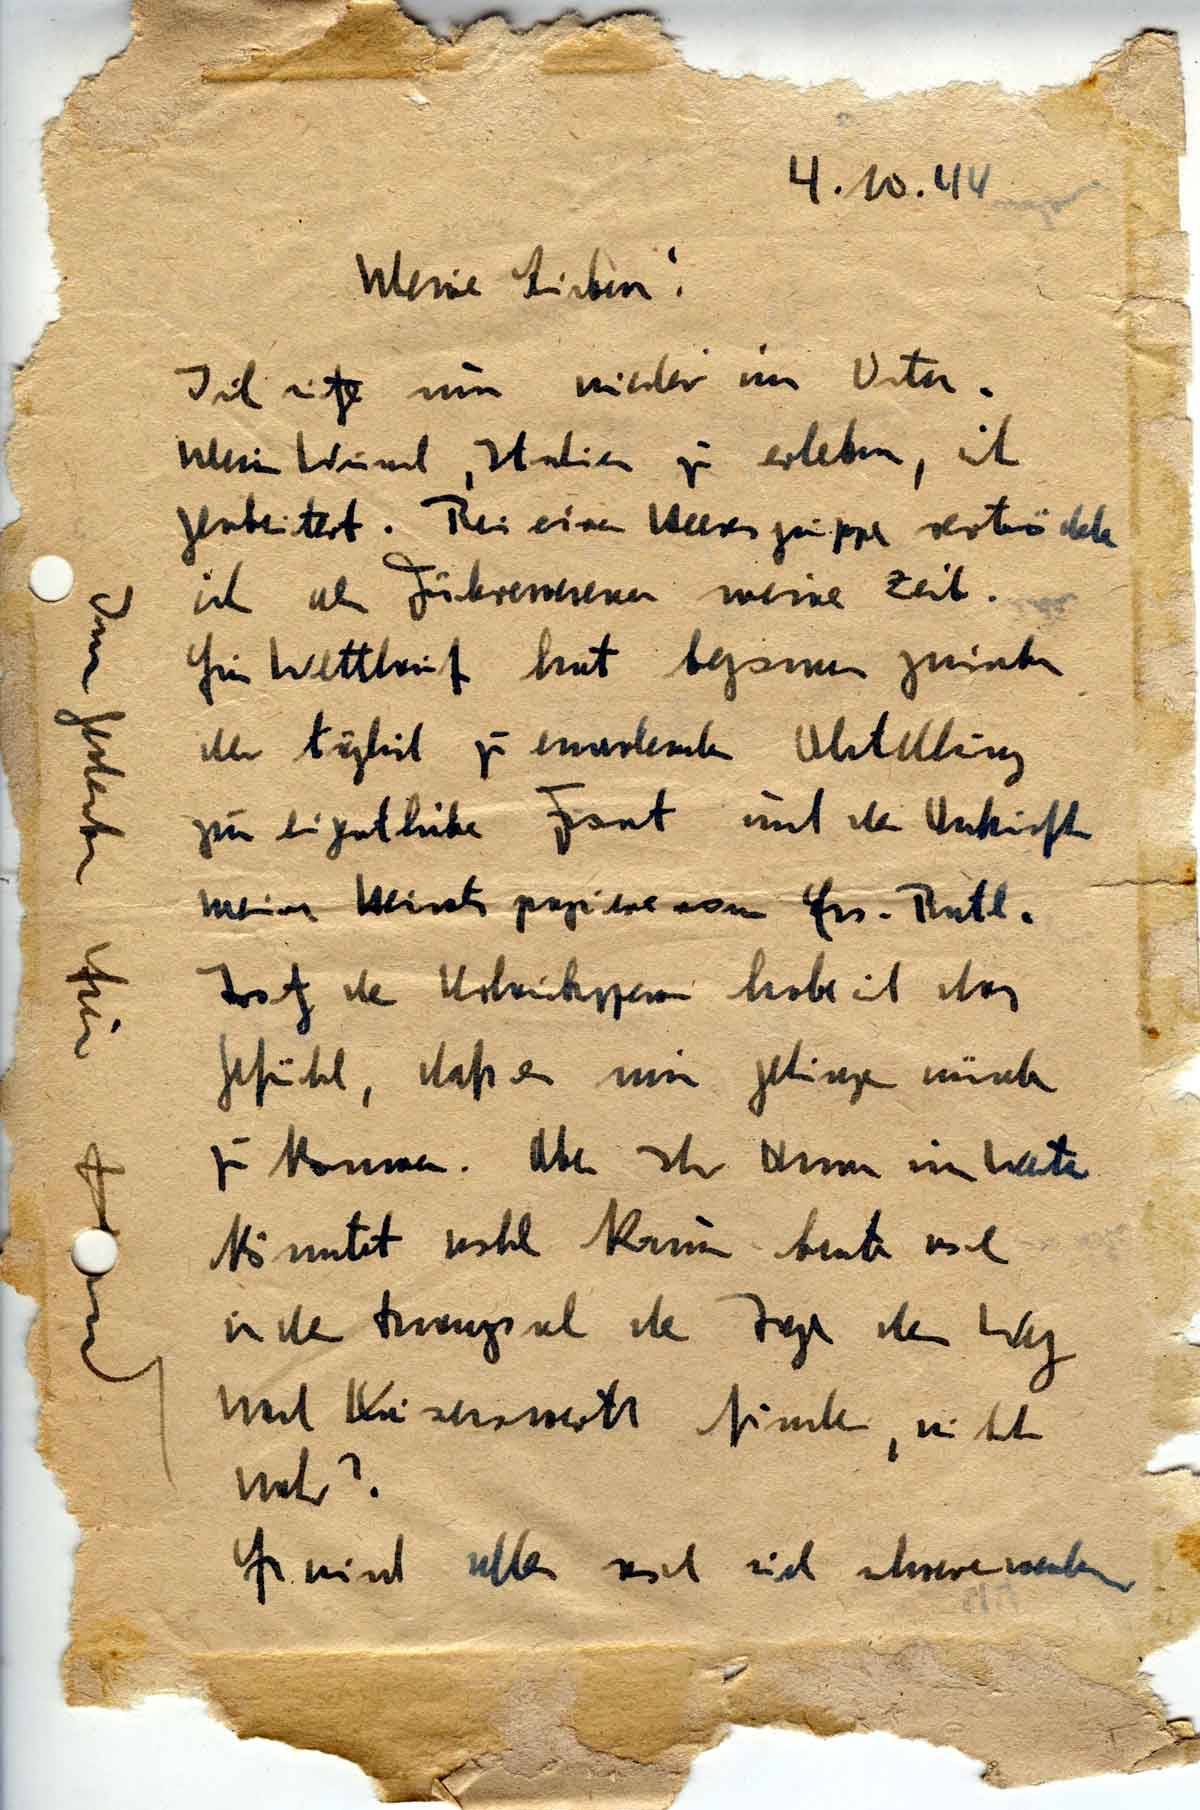 4.10.44
Meine Lieben!
Ich sitze nun wieder im Osten.
Mein Wunsch, Italien zu erleben, ist
gescheitert. Bei einer Heeresgruppe vertrödele
ich als Führerreserve meine Zeit.
Ein Wettlauf hat begonnen zwischen
der täglich zu erwartenden Abstellung
zur eigentlichen Front und der Ankunft
meiner Heiratspapiere vom Ers.-Batl.
Trotz der Urlaubssperre habe ich das
Gefühl, daß es mir gelingen würde
zu kommen. Aber Ihr Armen im Westen
könntet wohl kaum heute noch
in der Drangsal der Tage den Weg
nach Kaiserswerth finden, nicht
wahr?
Es wird alles noch sich schwere
Im Gedenken für